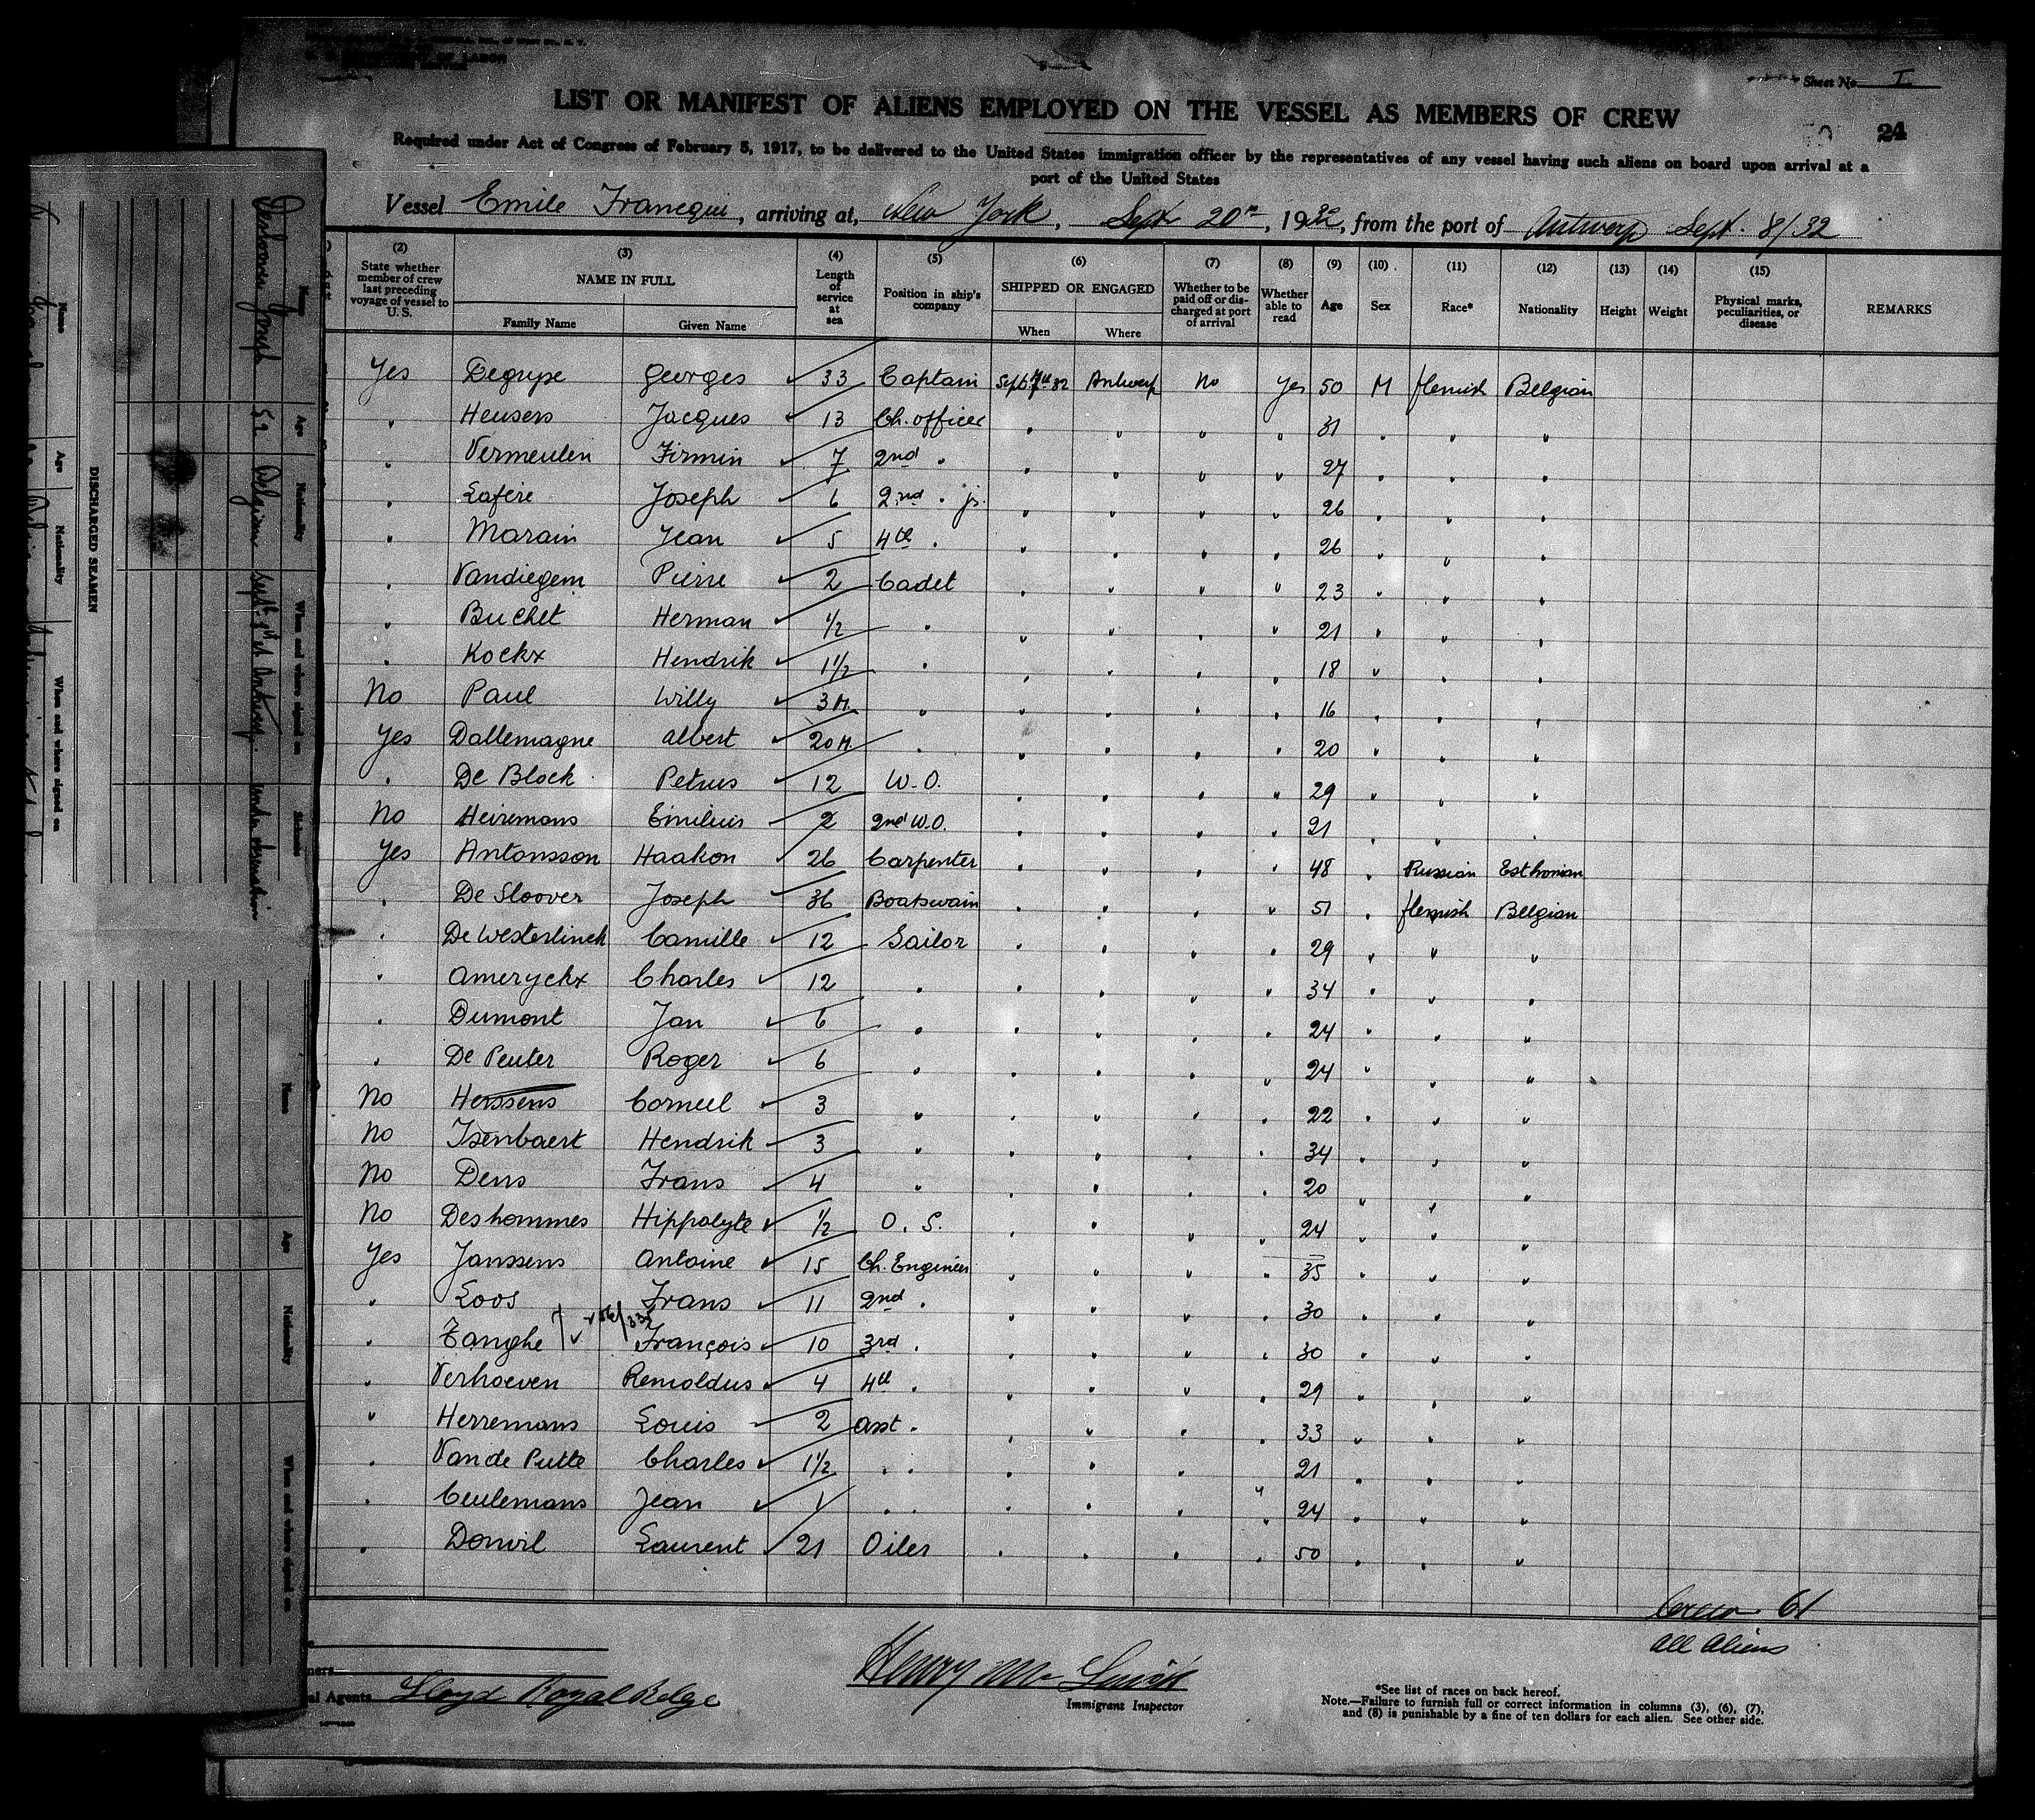 Sheet No. I
LIST OR MANIFEST OF ALIENS EMPLOYED ON THE VESSEL AS MEMBERS OF CREW
24
Required under Act of Congress of February 5, 1917, to be delivered to the United States immigration officer by the representatives of any vessel having such aliens on board upon arrival at a
port of the United States
Vessel Emile Francqui, arriving at, New York, Sept 20th, 1932, from the port of Antwerp Sept. 8/32
(2) (3) (4) (5) (6) (7) (8) (9) (10) (11) (12) (13) (14) (15)
State whether member of crew last preceding voyage of vessel to U. S. NAME IN FULL Length of service at sea Position in ship's company SHIPPED OR ENGAGED Whether to be paid off or discharged at port of arrival Whether able to read Age Sex Race* Nationality Height Weight Physical marks, peculiarities, or disease REMARKS
Family Name Given Name When Where
Yes Degryse Georges 33 Captain Sept 7th 32 Antwerp No Yes 50 M flemish Belgian
" Heusers Jacques 13 Ch. officer " " " " 31 " " "
" Vermeulen Firmin 7 2nd " " " " " 27 " " "
" Lafère Joseph 6 2nd " jr. " " " " 26 " " "
" Marain Jean 5 4th " " " " " 26 " " "
" Vandiegem Pierre 2 Cadet " " " " 23 " " "
" Buchet Herman 1/2 " " " " " 21 " " "
" Kockx Hendrik 1 1/2 " " " " " 18 " " "
No Paul Willy 3 M. " " " " " 16 " " "
Yes Dallemagne Albert 20 M. " " " " " 20 " " "
" De Block Petrus 12 W.O. " " " " 29 " " "
No Heiremans Emilius 2 2nd W.O. " " " " 21 " " "
Yes Antonsson Haakon 26 Carpenter " " " " 48 " Russian Esthonian
" De Sloover Joseph 36 Boatswain " " " " 51 " flemish Belgian
" De Westerlinck Camille 12 Sailor " " " " 29 " " "
" Ameryckx Charles 12 " " " " " 34 " " "
" Dumont Jan 6 " " " " " 24 " " "
" De Peuter Roger 6 " " " " " 24 " " "
No Herssens Corneel 3 " " " " " 22 " " "
No Isenbaert Hendrik 3 " " " " " 34 " " "
No Dens Frans 4 " " " " " 20 " " "
No Deshommes Hippolyte 1/2 O. S. " " " " 24 " " "
Yes Janssens Antoine 15 Ch. Engineer " " " " 35 " " "
" Loos Frans 11 2nd " " " " " 30 " " "
" Tanghe François 10 3rd " " " " " 30 " " "
" Verhoeven Remoldus 4 4th " " " " " 29 " " "
" Herremans Louis 2 Asst. " " " " 33 " " "
" Van de Putte Charles 1 1/2 " " " " " " 21 " " "
" Ceulemans Jean 1 " " " " " " 24 " " "
" Donvil Laurent 21 Oiler " " " " 50 " " "
Crew 61
All Aliens
Lloyd Royal Belge
Immigrant Inspector
*See list of races on back hereof.
Note.—Failure to furnish full or correct information in columns (3), (6), (7),
and (8) is punishable by a fine of ten dollars for each alien. See other side.
DISCHARGED SEAMEN
Name Age Nationality When and where signed on
Joseph 52 Belgian Sept 7th at Antwerp. under observation
Name Age Nationality When and where signed on